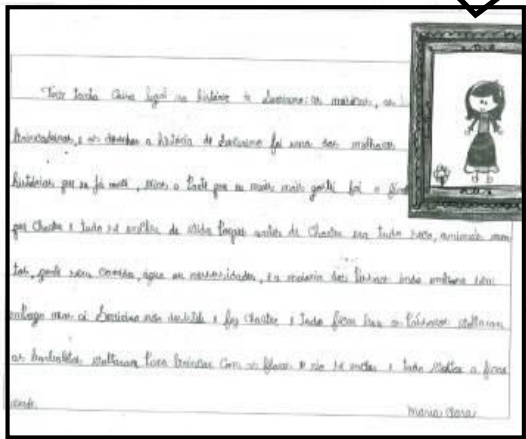 Tive tanta coisa legal na história de Severino: as músicas, as
brincadeiras, e os desenhos a história de Severino foi uma das melhores
histórias que eu já , mas a parte que eu mais mais gostei foi o
que Chover e tudo se encheu de vida Porque antes de Chover era tudo seco, animais mor
tos, gente sem comida, água ou necessidades, e a maioria das indo embora sem
emprego mas aí Severino não desistiu e fez Chover e tudo ficou voltaram
as borboletas voltaram Para brincar Com as flores e o rio se encheu e tudo voltou a ficar
verde.
Maria Clara